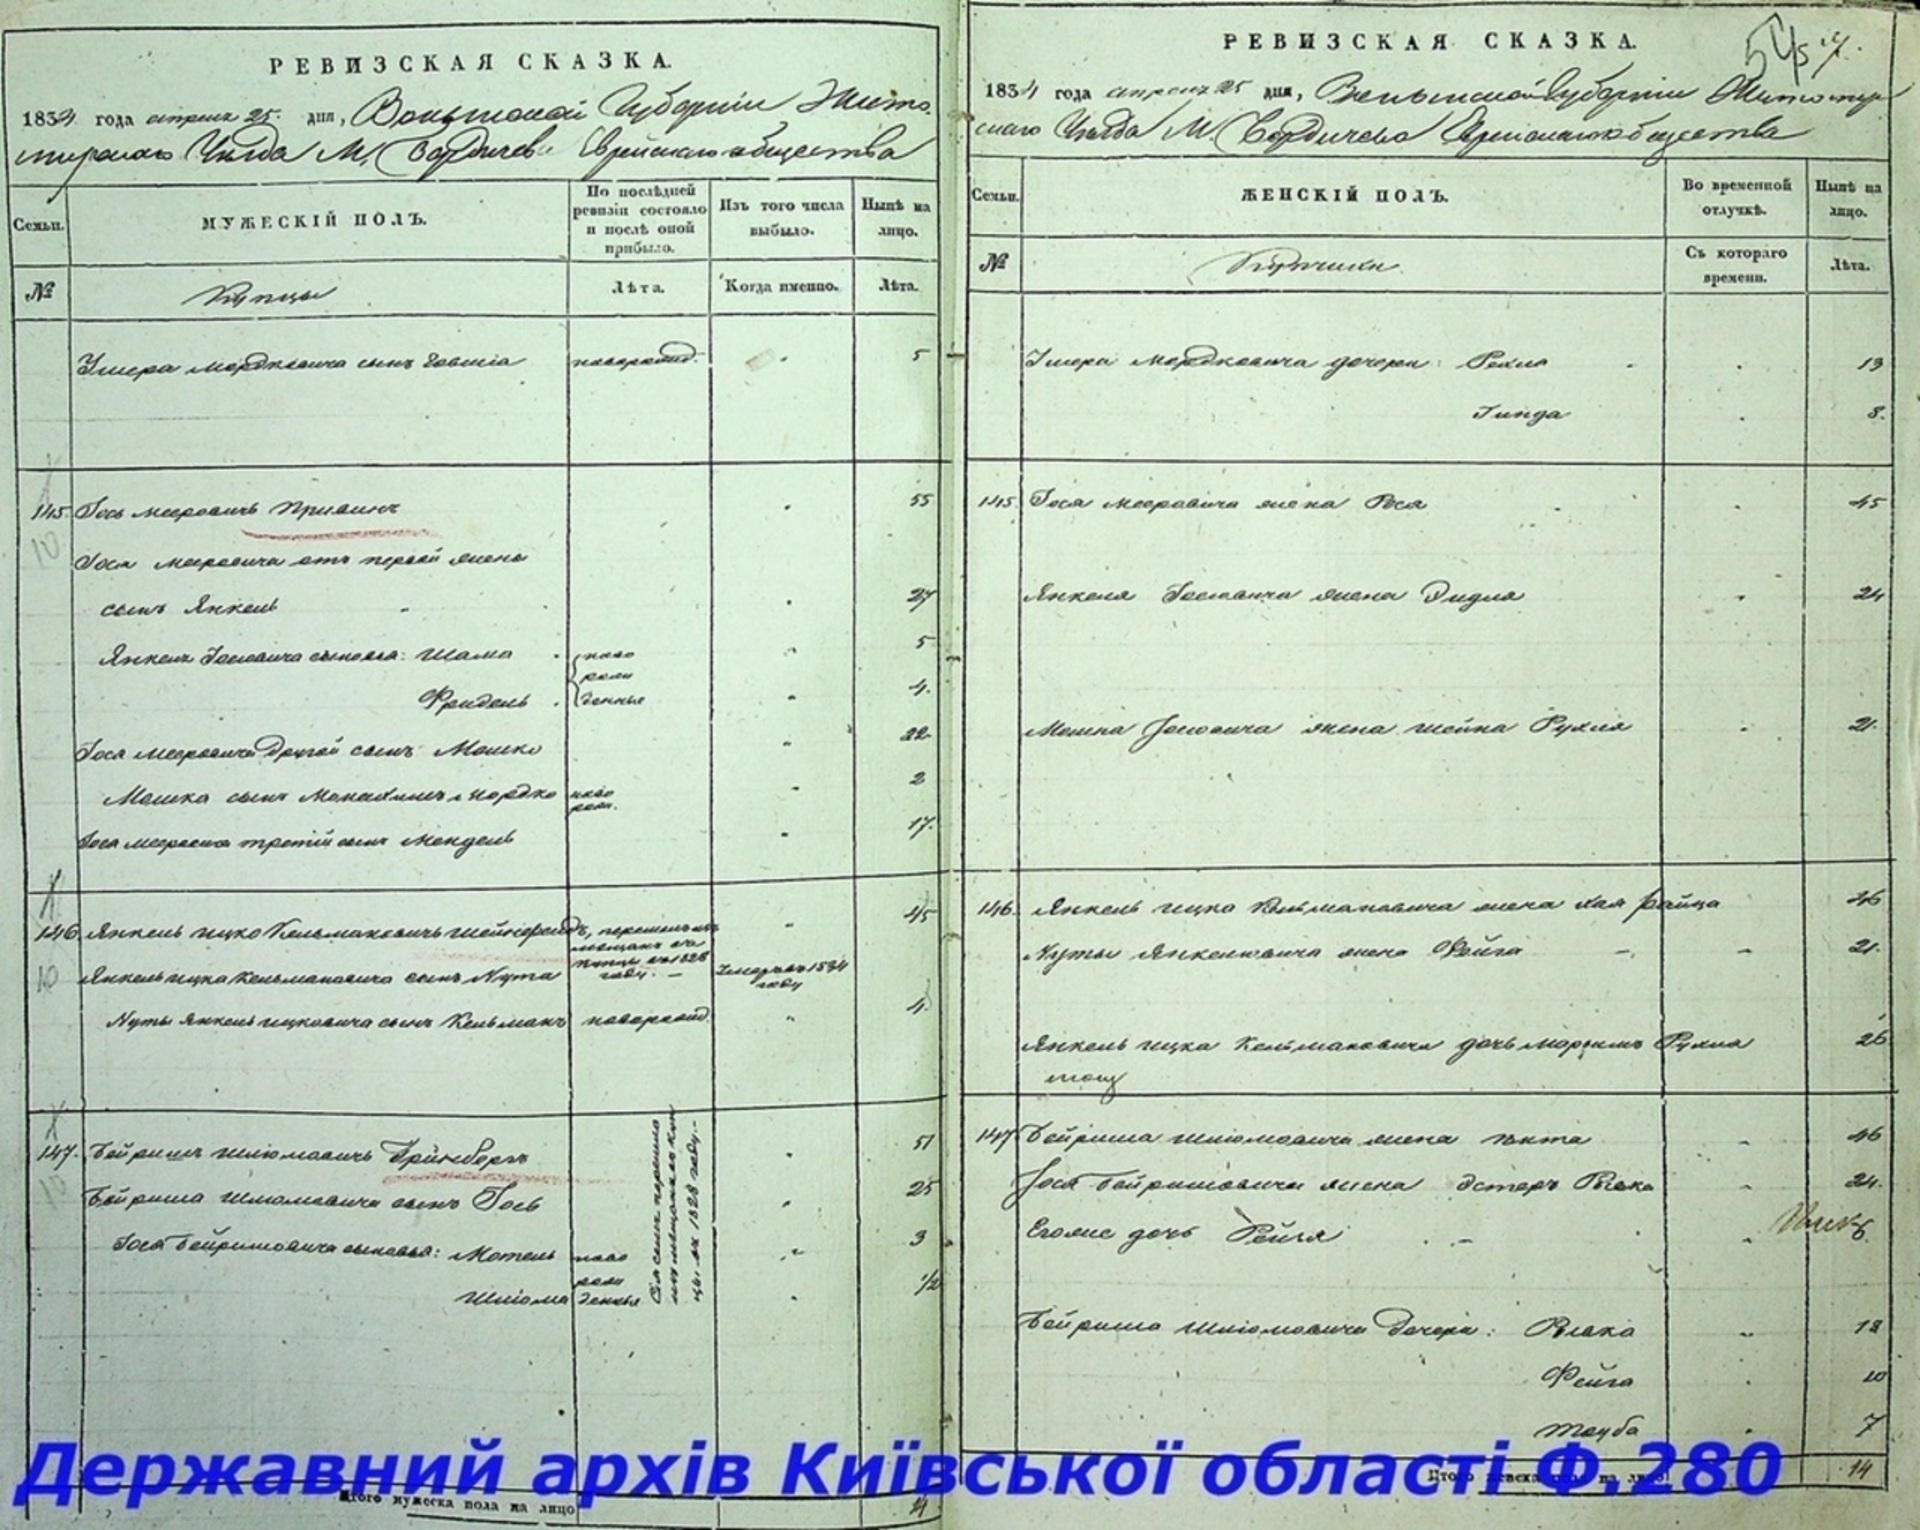 РЕВИЗСКАЯ СКАЗКА.
1834 года апреля 25. дня, Волынской Губернiи Жито-
мирскаго Уезда М. Бердичева Еврейскаго общества
Семьи.
МУЖЕСКIЙ ПОЛЪ.
По послѣдней ревизiи состояло и послѣ оной прибыло.
Изъ того числа выбыло.
Нынѣ на лицо.
№
Купцы
Лѣта.
Когда именно.
Лѣта.
Мордковича сынъ новорожд. 5
145. Гось Мееровичъ 55
Гося Мееровича отъ первой жены
сынъ Янкель 27
Янкеля Госiовича сыновья: Шама 5
Фридель 4.
ново
рож
денные
Гося Мееровича другой сынъ Мошко 22
Мошка сынъ Мордко ново рож. 2
Гося Мееровича третiй сынъ Мендель 17.
146 Янкель Ицко Кельмановичъ 45
купцы въ 1828 году.
Янкель Ицка Кельмановича сынъ Нута Умеръ въ 1834 году
Нуты Янкель Ицковича сынъ Кельманъ новорожд. 4.
147. Бейришъ Шлiомовичъ Грiинбергъ 51
Бейриша Шлiомовича сынъ Гось 25
Гося Бейришовича сыновья: Мотель 3
Шлiома 1/2
ново
рож
денные
въ 1828 году.
Итого мужеска пола на лицо
РЕВИЗСКАЯ СКАЗКА.
1834 года апреля 25 дня, Волынской Губернiи Житомир-
скаго Уезда М. Бердичева Еврейскаго общества
Семьи.
ЖЕНСКIЙ ПОЛЪ.
Во временной отлучкѣ.
Нынѣ на лицо.
№
Купчихи
Съ котораго времени.
Лѣта.
Мордковича дочери: Рохля 13
Гинда 8.
145 Гося Мееровича жена Рося 45
Янкеля Госiовича жена 24
Мошка Госiовича жена Шейна Рухля 21.
146. Янкель Ицка Кельмановича жена Хая 46
Нуты Янкелiовича жена Фейга 21.
Янкель Ицка Кельмановича дочь Рухля 26
147 Бейриша Шлiомовича жена 46
Гося Бейришовича жена Эстеръ Ривка 24.
Егоже дочь Рейзя
Бейриша Шлiомовича дочери: Ривка 18
Фейга 10
Тауба 7
Итого женска пола на лицо 14
Державний архів Київської області Ф.280